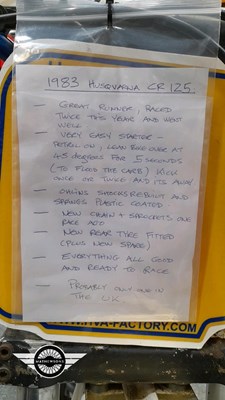 1983 HUSQVARNA CR 125
— GREAT RUNNER, RACED
TWICE THIS YEAR AND WENT
WELL
— VERY EASY STARTER –
PETROL ON, LEAN BIKE OVER AT
45 DEGREES FOR 5 SECONDS
(TO FLOOD THE CARB) KICK
ONCE OR TWICE AND ITS AWAY
— OHLINS SHOCKS REBUILT AND
SPRINGS PLASTIC COATED
— NEW CHAIN & SPROCKETS, ONE
RACE OLD
— NEW REAR TYRE FITTED
(PLUS NEW SPARE)
— EVERYTHING ALL GOOD
AND READY TO RACE
— PROBABLY ONLY ONE IN
THE UK
HVA-FACTORY.COM
MATHEWSONS